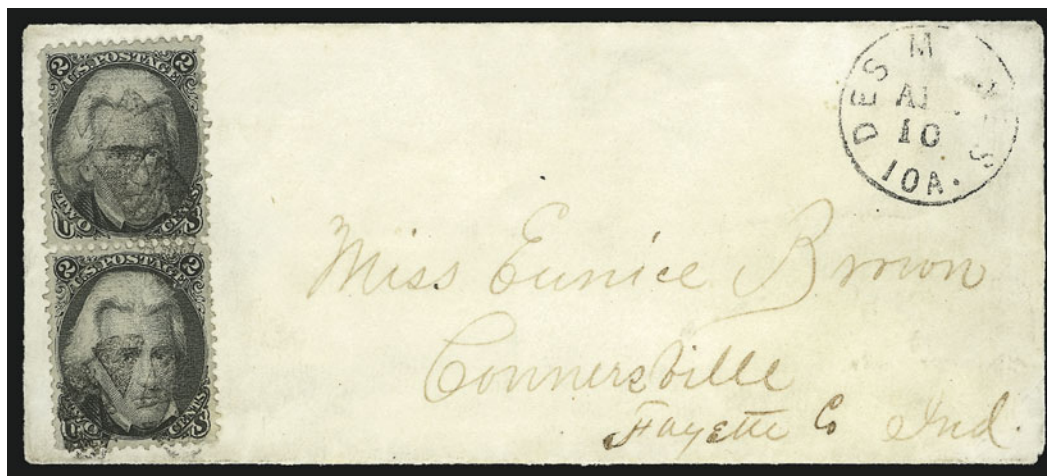 2 2
U.S. POSTAGE
U CENTS
2 2
U.S. POSTAGE
U CENTS
DES M S
10
IOA.
Miss Eunice Brown
Connersville
Fayette Co Ind.